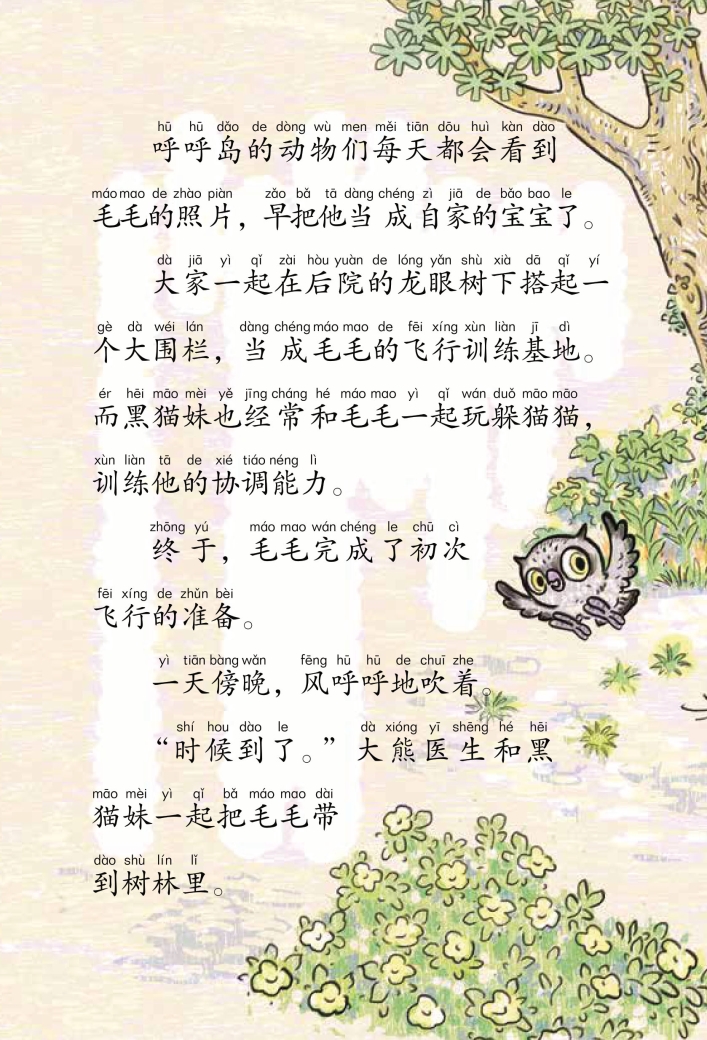 hū hū dǎo de dòng wù men měi tiān dōu huì kàn dào
呼呼岛的动物们每天都会看到
máo mao de zhào piàn zǎo bǎ tā dàng chéng zì jiā de bǎo bao le
毛毛的照片，早把他当成自家的宝宝了。
dà jiā yì qǐ zài hòu yuàn de lóng yǎn shù xià dā qǐ yí
大家一起在后院的龙眼树下搭起一
gè dà wéi lán dàng chéng máo mao de fēi xíng xùn liàn jī dì
个大围栏，当成毛毛的飞行训练基地。
ér hēi māo mèi yě jīng cháng hé máo mao yì qǐ wán duǒ māo māo
而黑猫妹也经常和毛毛一起玩躲猫猫，
xùn liàn tā de xié tiáo néng lì
训练他的协调能力。
zhōng yú máo mao wán chéng le chū cì
终于，毛毛完成了初次
fēi xíng de zhǔn bèi
飞行的准备。
yì tiān bàng wǎn fēng hū hū de chuī zhe
一天傍晚，风呼呼地吹着。
shí hou dào le dà xióng yī shēng hé hēi
“时候到了。”大熊医生和黑
māo mèi yì qǐ bǎ máo mao dài
猫妹一起把毛毛带
dào shù lín lǐ
到树林里。